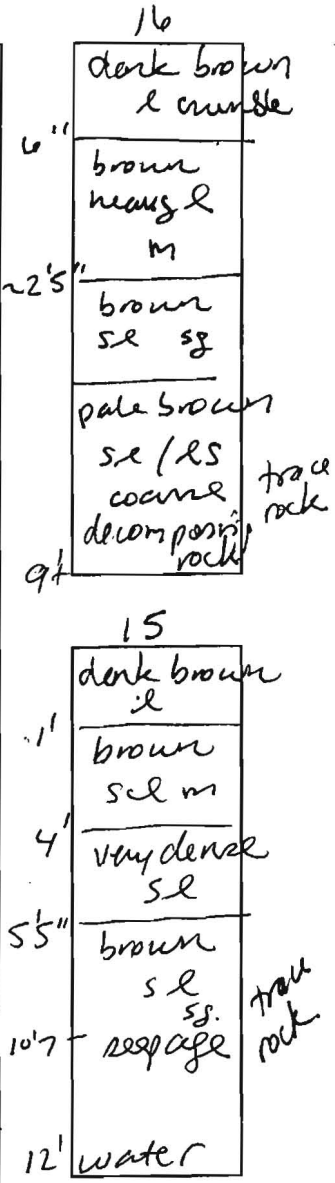 16
dark brown
l crumble
6"
brown
heavy l
m
~2'5"
brown
sl sg
pale brown
sl / ls
coarse
trace
rock
decomposing
rock
9'+
15
dark brown
l
1'
brown
scl m
4'
very dense
sl
5'5"
brown
sl
sg.
trace
rock
10'7
seepage
12'
water